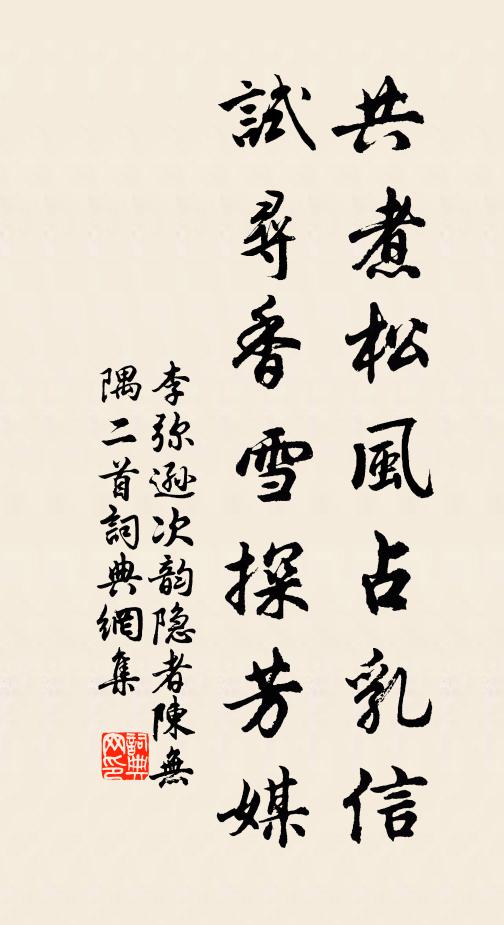 共煮松風占乳信
試尋香雪探芳媒
李弥遜次韵隐者陳無
隅二首詞典網集
詞典
网印